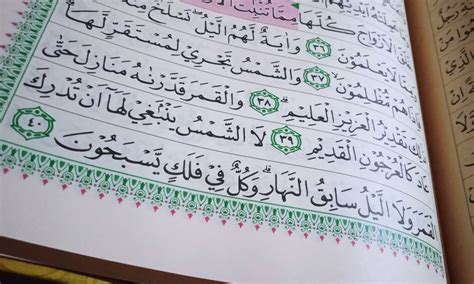 الْاَزْوَاجَ كُلَّهَا مِمَّا تُنْۢبِتُ
لَا يَعْلَمُوْنَ ٣٦ وَاٰيَةٌ لَّهُمُ الَّيْلُ نَسْلَخُ مِنْهُ
هُمْ مُّظْلِمُوْنَ ٣٧ وَالشَّمْسُ تَجْرِيْ لِمُسْتَقَرٍّ لَّهَا
ذٰلِكَ تَقْدِيْرُ الْعَزِيْزِ الْعَلِيْمِ ٣٨ وَالْقَمَرَ قَدَّرْنٰهُ مَنَازِلَ حَتّٰى
عَادَ كَالْعُرْجُوْنِ الْقَدِيْمِ ٣٩ لَا الشَّمْسُ يَنْۢبَغِيْ لَهَآ اَنْ تُدْرِكَ
الْقَمَرَ وَلَا الَّيْلُ سَابِقُ النَّهَارِ وَكُلٌّ فِيْ فَلَكٍ يَّسْبَحُوْنَ ٤٠